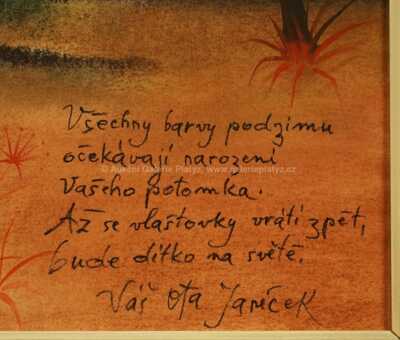 Všechny barvy podzimu
očekávají narození
© Aukční Galerie Platýz, www.galerieplatyz.cz
Vašeho potomka.
Až se vlaštovky vrátí zpět,
bude dítko na světě.
Váš Ota Janeček